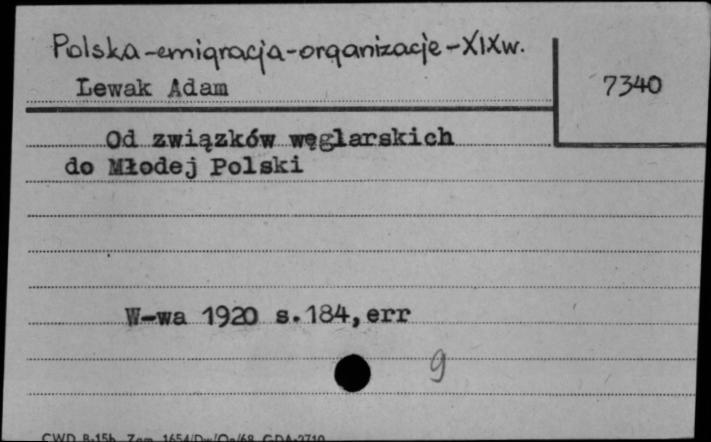 Polska-emigracja-organizacje-XIXw.
Lewak Adam
7340
Od związków węglarskich
do Młodej Polski
W-wa 1920 s.184,err
9
CWD B-15h Zam. 1654/Dw/Oa/68 GDA-2710